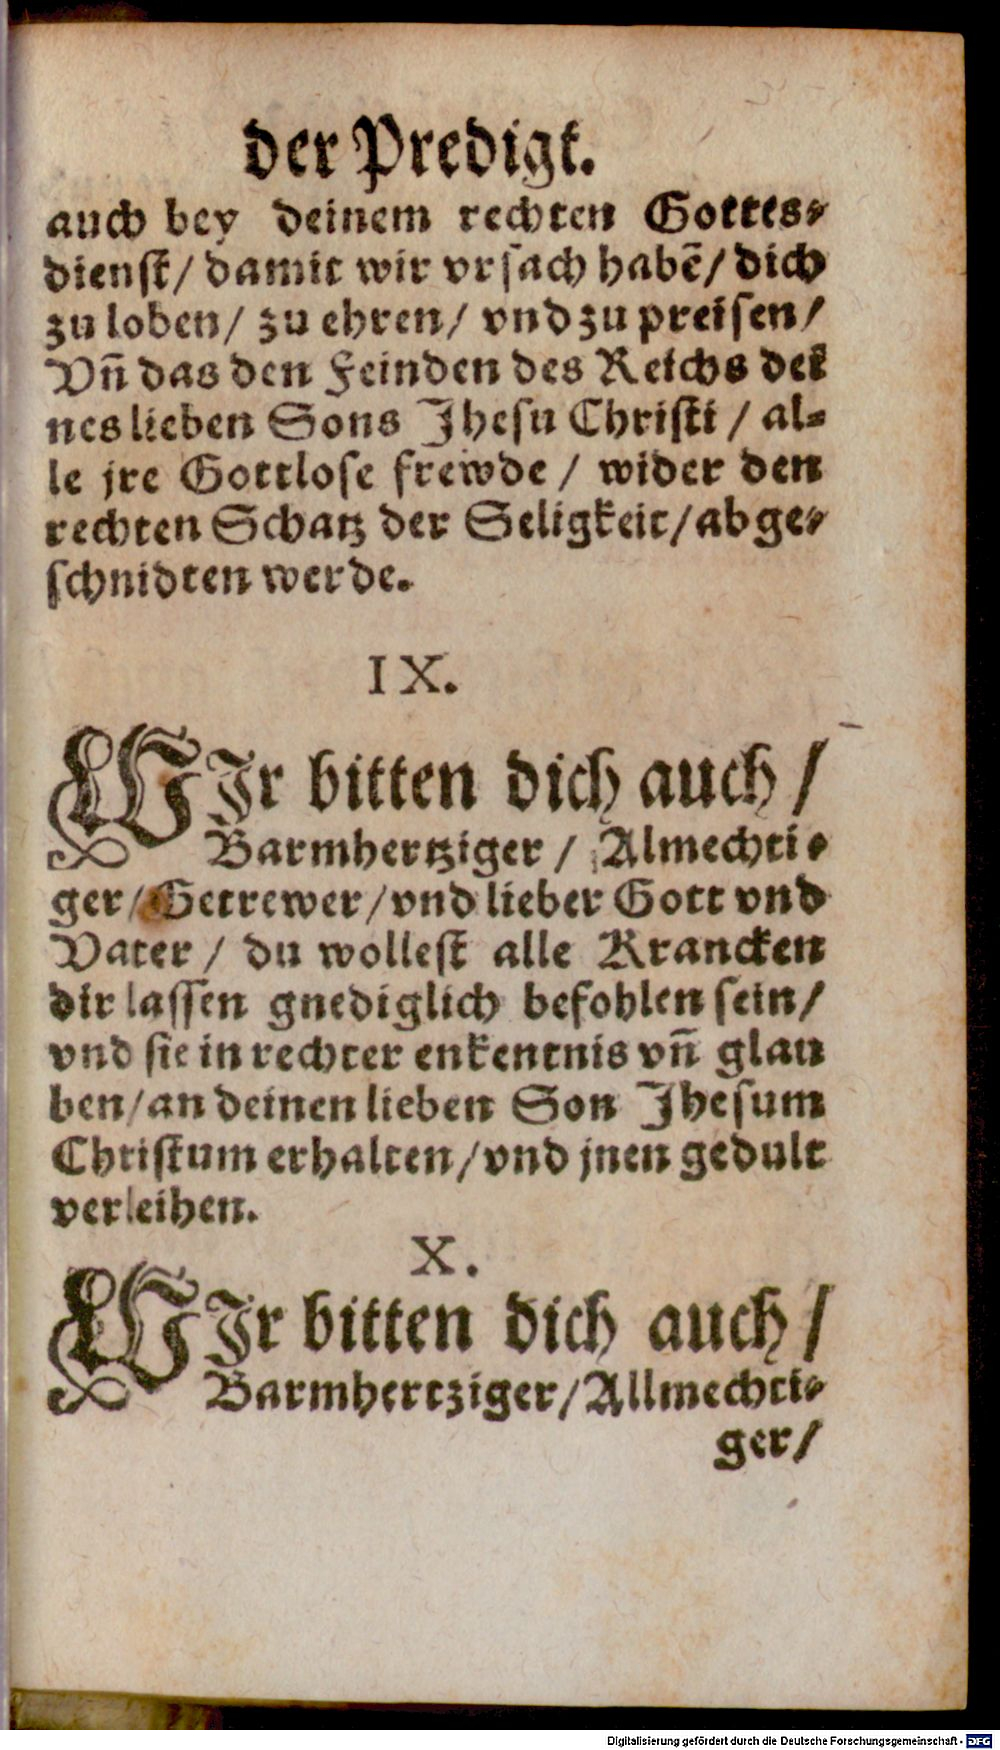 der Predigt.
auch bey deinem rechten Gottes-
dienst/ damit wir vrsach habẽ/ dich
zu loben/ zu ehren/ vnd zu preisen/
Vñ das den Feinden des Reichs dei
nes lieben Sons Jhesu Christi / al-
le jre Gottlose frewde / wider den
rechten Schatz der Seligkeit/ abge-
schnidten werde.
IX.
WIr bitten dich auch /
Barmhertziger / Almechti-
ger/ Getrewer/ vnd lieber Gott vnd
Vater / du wollest alle Krancken
dir lassen gnediglich befohlen sein/
vnd sie in rechter enkentnis vñ glau
ben/ an deinen lieben Son Jhesum
Christum erhalten/ vnd jnen gedult
verleihen.
X.
WIr bitten dich auch /
Barmhertziger/ Allmechti-
ger/
Digitalisierung gefördert durch die Deutsche Forschungsgemeinschaft - DFG